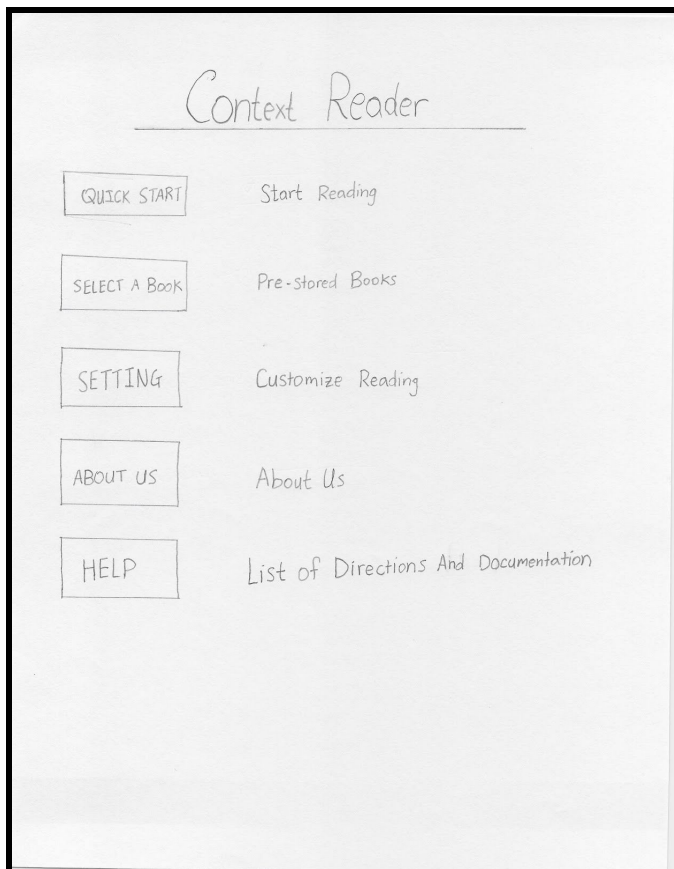 Context Reader
QUICK START Start Reading
SELECT A BooK Pre-Stored Books
SETTING Customize Reading
ABOUT US About Us
HELP List of Directions And Documentation